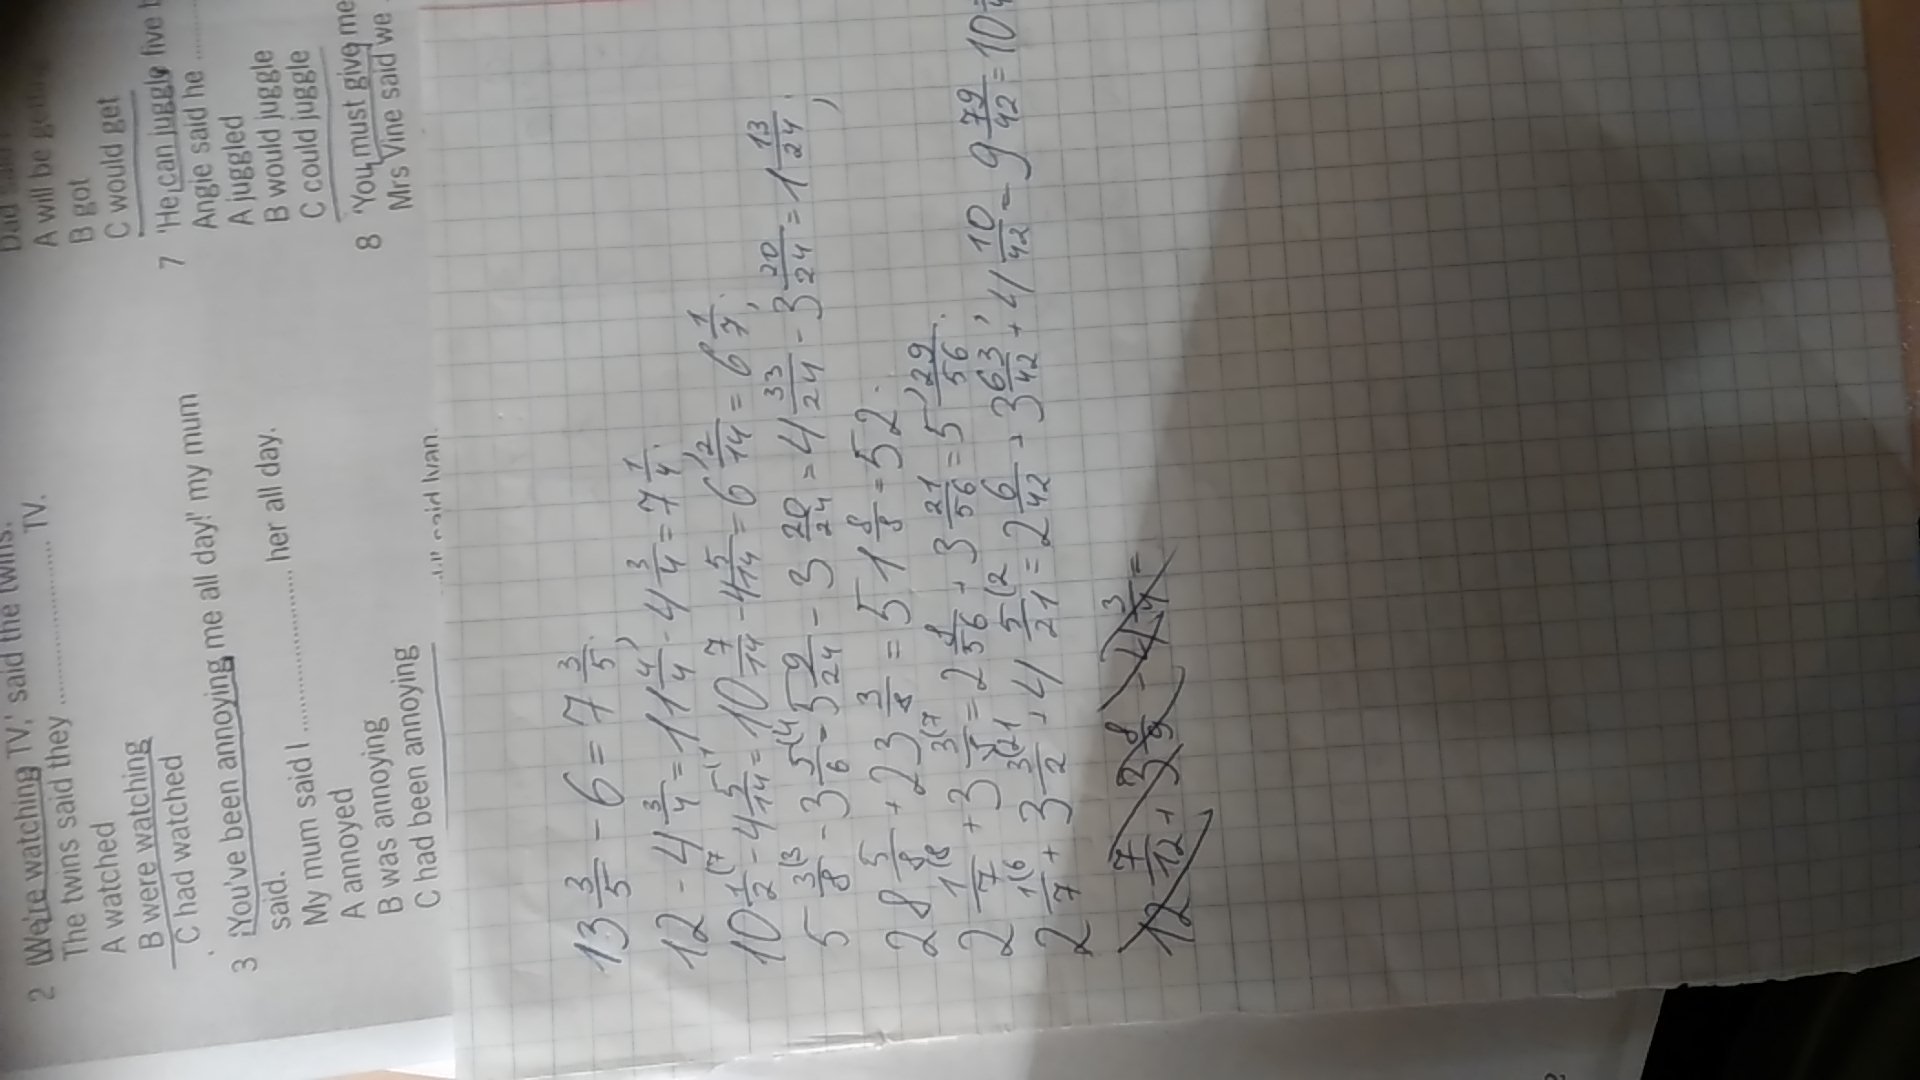 2 'We're watching TV,' said the twins.
The twins said they .................... TV.
A watched
B were watching
C had watched
3 'You've been annoying me all day!' my mum
said.
My mum said I .................... her all day.
A annoyed
B was annoying
C had been annoying
said Ivan.
A will be
B got
C would get
7 'He can juggle five
Angie said he ..........
A juggled
B would juggle
C could juggle
8 'You must give me
Mrs Vine said we
13 3/5 - 6 = 7 3/5.
12 - 4 3/4 = 11 4/4 - 4 3/4 = 7 1/4.
10 1/2 - 4 5/14 = 10 7/14 - 4 5/14 = 6 2/14 = 6 1/7.
5 3/8 - 3 5/6 = 5 9/24 - 3 20/24 = 4 33/24 - 3 20/24 = 1 13/24.
28 5/8 + 23 3/8 = 51 8/8 = 52.
2 1/7 + 3 3/ = 2 8/56 + 3 21/56 = 5 29/56.
2 1/7 + 3 3/2 + 4 5/21 = 2 6/42 + 3 63/42 + 4 10/42 = 9 79/42 = 10
12 7/12 + 3 8/9 - 4 3/4 =